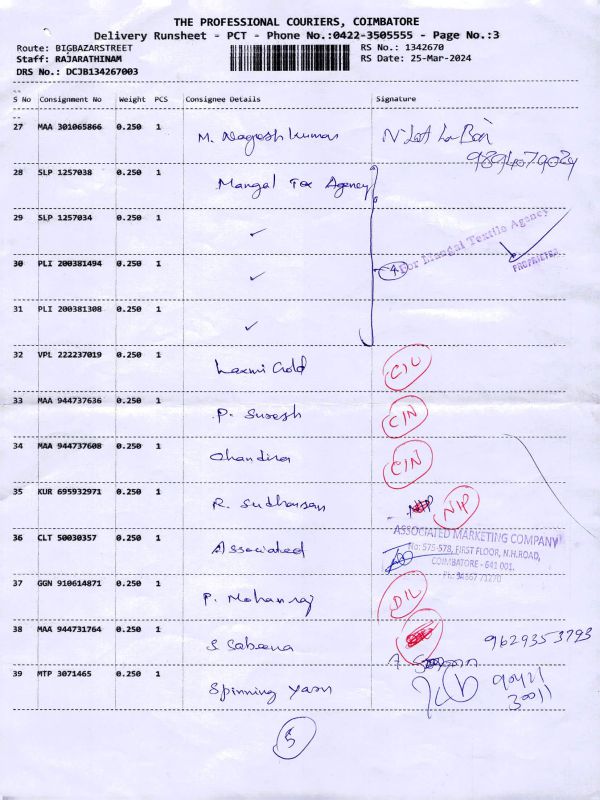 THE PROFESSIONAL COURIERS, COIMBATORE
Delivery Runsheet - PCT - Phone No.:0422-3505555 - Page No.:3
Route: BIGBAZARSTREET RS No.: 1342670
Staff: RAJARATHINAM RS Date: 25-Mar-2024
DRS No.: DCJB134267003
S No Consignment No Weight PCS Consignee Details Signature
27 MAA 301065866 0.250 1 M. Nagesh kumar
9894079024
28 SLP 1257038 0.250 1 Mangal Tex Agency
29 SLP 1257034 0.250 1 ✓
For Mangal Textile Agency
PROPRIETOR
30 PLI 200381494 0.250 1 ✓ 4
31 PLI 200381308 0.250 1 ✓
32 VPL 222237019 0.250 1 Laxmi Gold
33 MAA 944737636 0.250 1 P. Suresh C/N
34 MAA 944737608 0.250 1 Chandira C/N
35 KUR 695932971 0.250 1 R. Sudharsan N/P
36 CLT 50030357 0.250 1 Associated
ASSOCIATED MARKETING COMPANY
No: 575-578, FIRST FLOOR, N.H.ROAD,
COIMBATORE - 641 001.
Ph: 94667 71270
37 GGN 910614871 0.250 1 P. Mohanraj D/L
38 MAA 944731764 0.250 1 S Sabeena 9629353793
39 MTP 3071465 0.250 1 Spinning Yarn 90421
30011
5